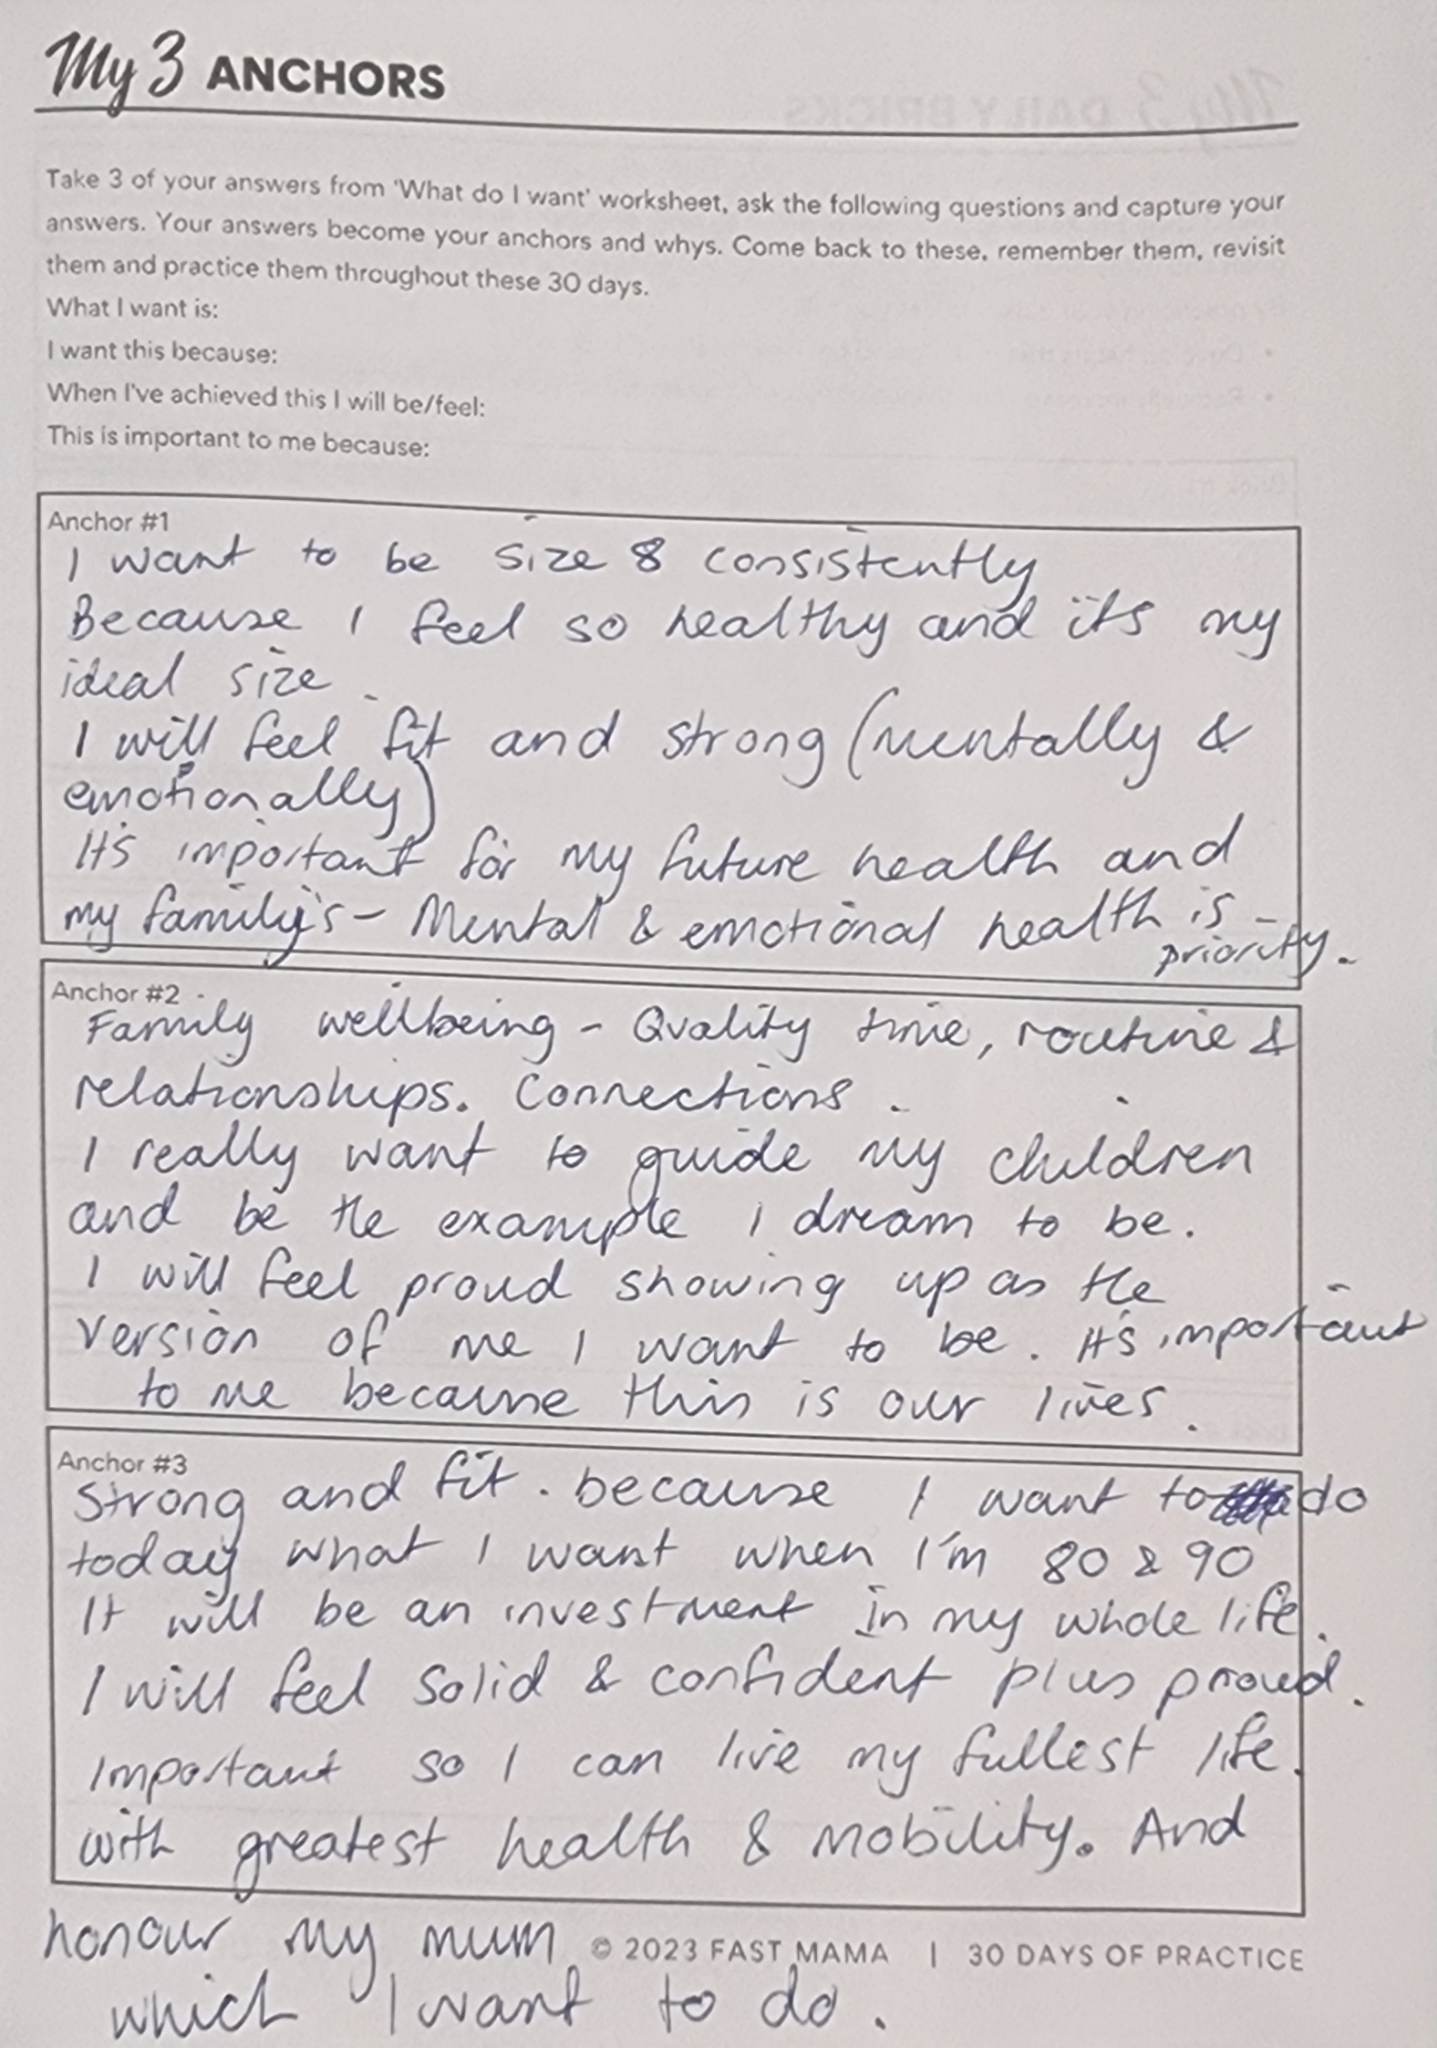 My 3 ANCHORS
Take 3 of your answers from 'What do I want' worksheet, ask the following questions and capture your
answers. Your answers become your anchors and whys. Come back to these, remember them, revisit
them and practice them throughout these 30 days.
What I want is:
I want this because:
When I've achieved this I will be/feel:
This is important to me because:
Anchor #1
I want to be size 8 consistently
Because I feel so healthy and it's my
ideal size.
I will feel fit and strong (mentally &
emotionally)
It's important for my future health and
my family's - Mental & emotional health is
priority.
Anchor #2
Family wellbeing - Quality time, routine &
relationships. Connections.
I really want to guide my children
and be the example I dream to be.
I will feel proud showing up as the
version of me I want to be. It's important
to me because this is our lives.
Anchor #3
Strong and fit. because I want to do
today what I want when I'm 80 & 90
It will be an investment in my whole life.
I will feel solid & confident plus proud.
Important so I can live my fullest life.
with greatest health & mobility. And
honour my mum
© 2023 FAST MAMA | 30 DAYS OF PRACTICE
which I want to do.